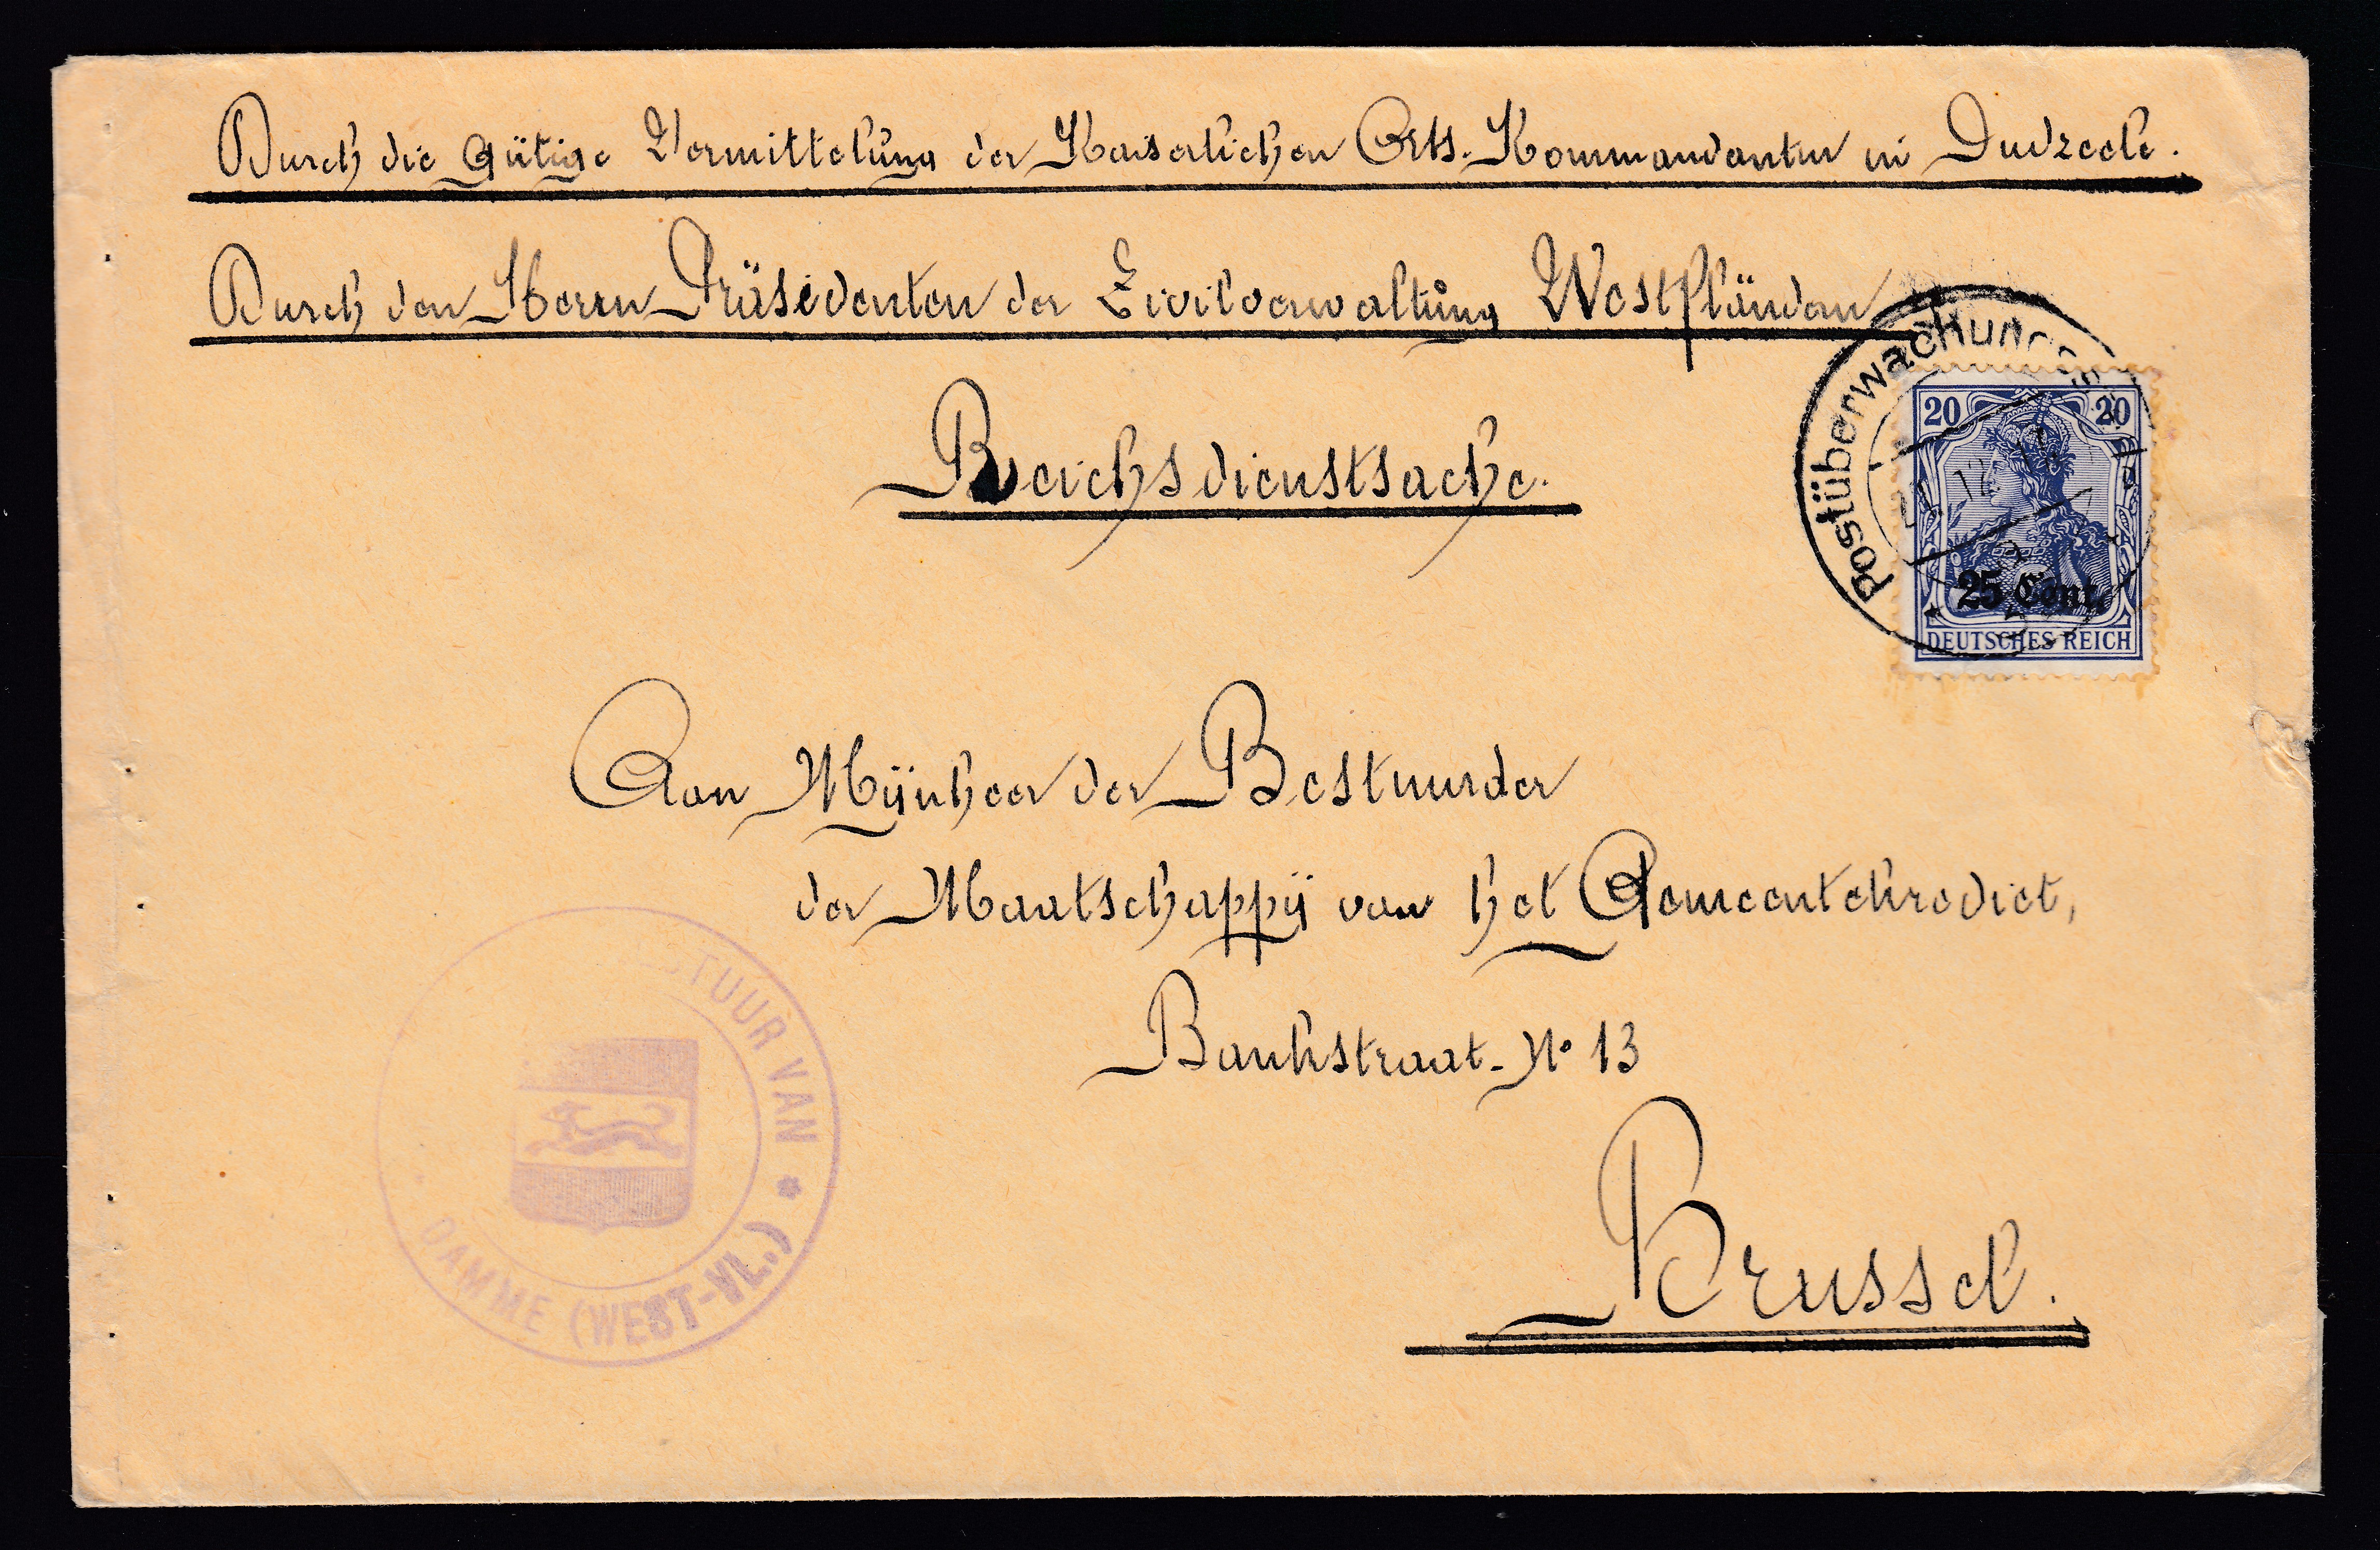 Durch die gütige Vermittelung der Kaiserlichen Orts-Kommandantur in Dudzeele.
Durch den Herrn Präsidenten der Zivilverwaltung Westflandern
Reichsdienstsache.
Postüberwachungs
20 20
12
25 Cent.
DEUTSCHES REICH
Aan Mijnheer der Bestuurder
der Maatschappij van het Gemeentekrediet,
Bankstraat - No 13
Brussel.
TUUR VAN
DAMME (WEST-VL.)